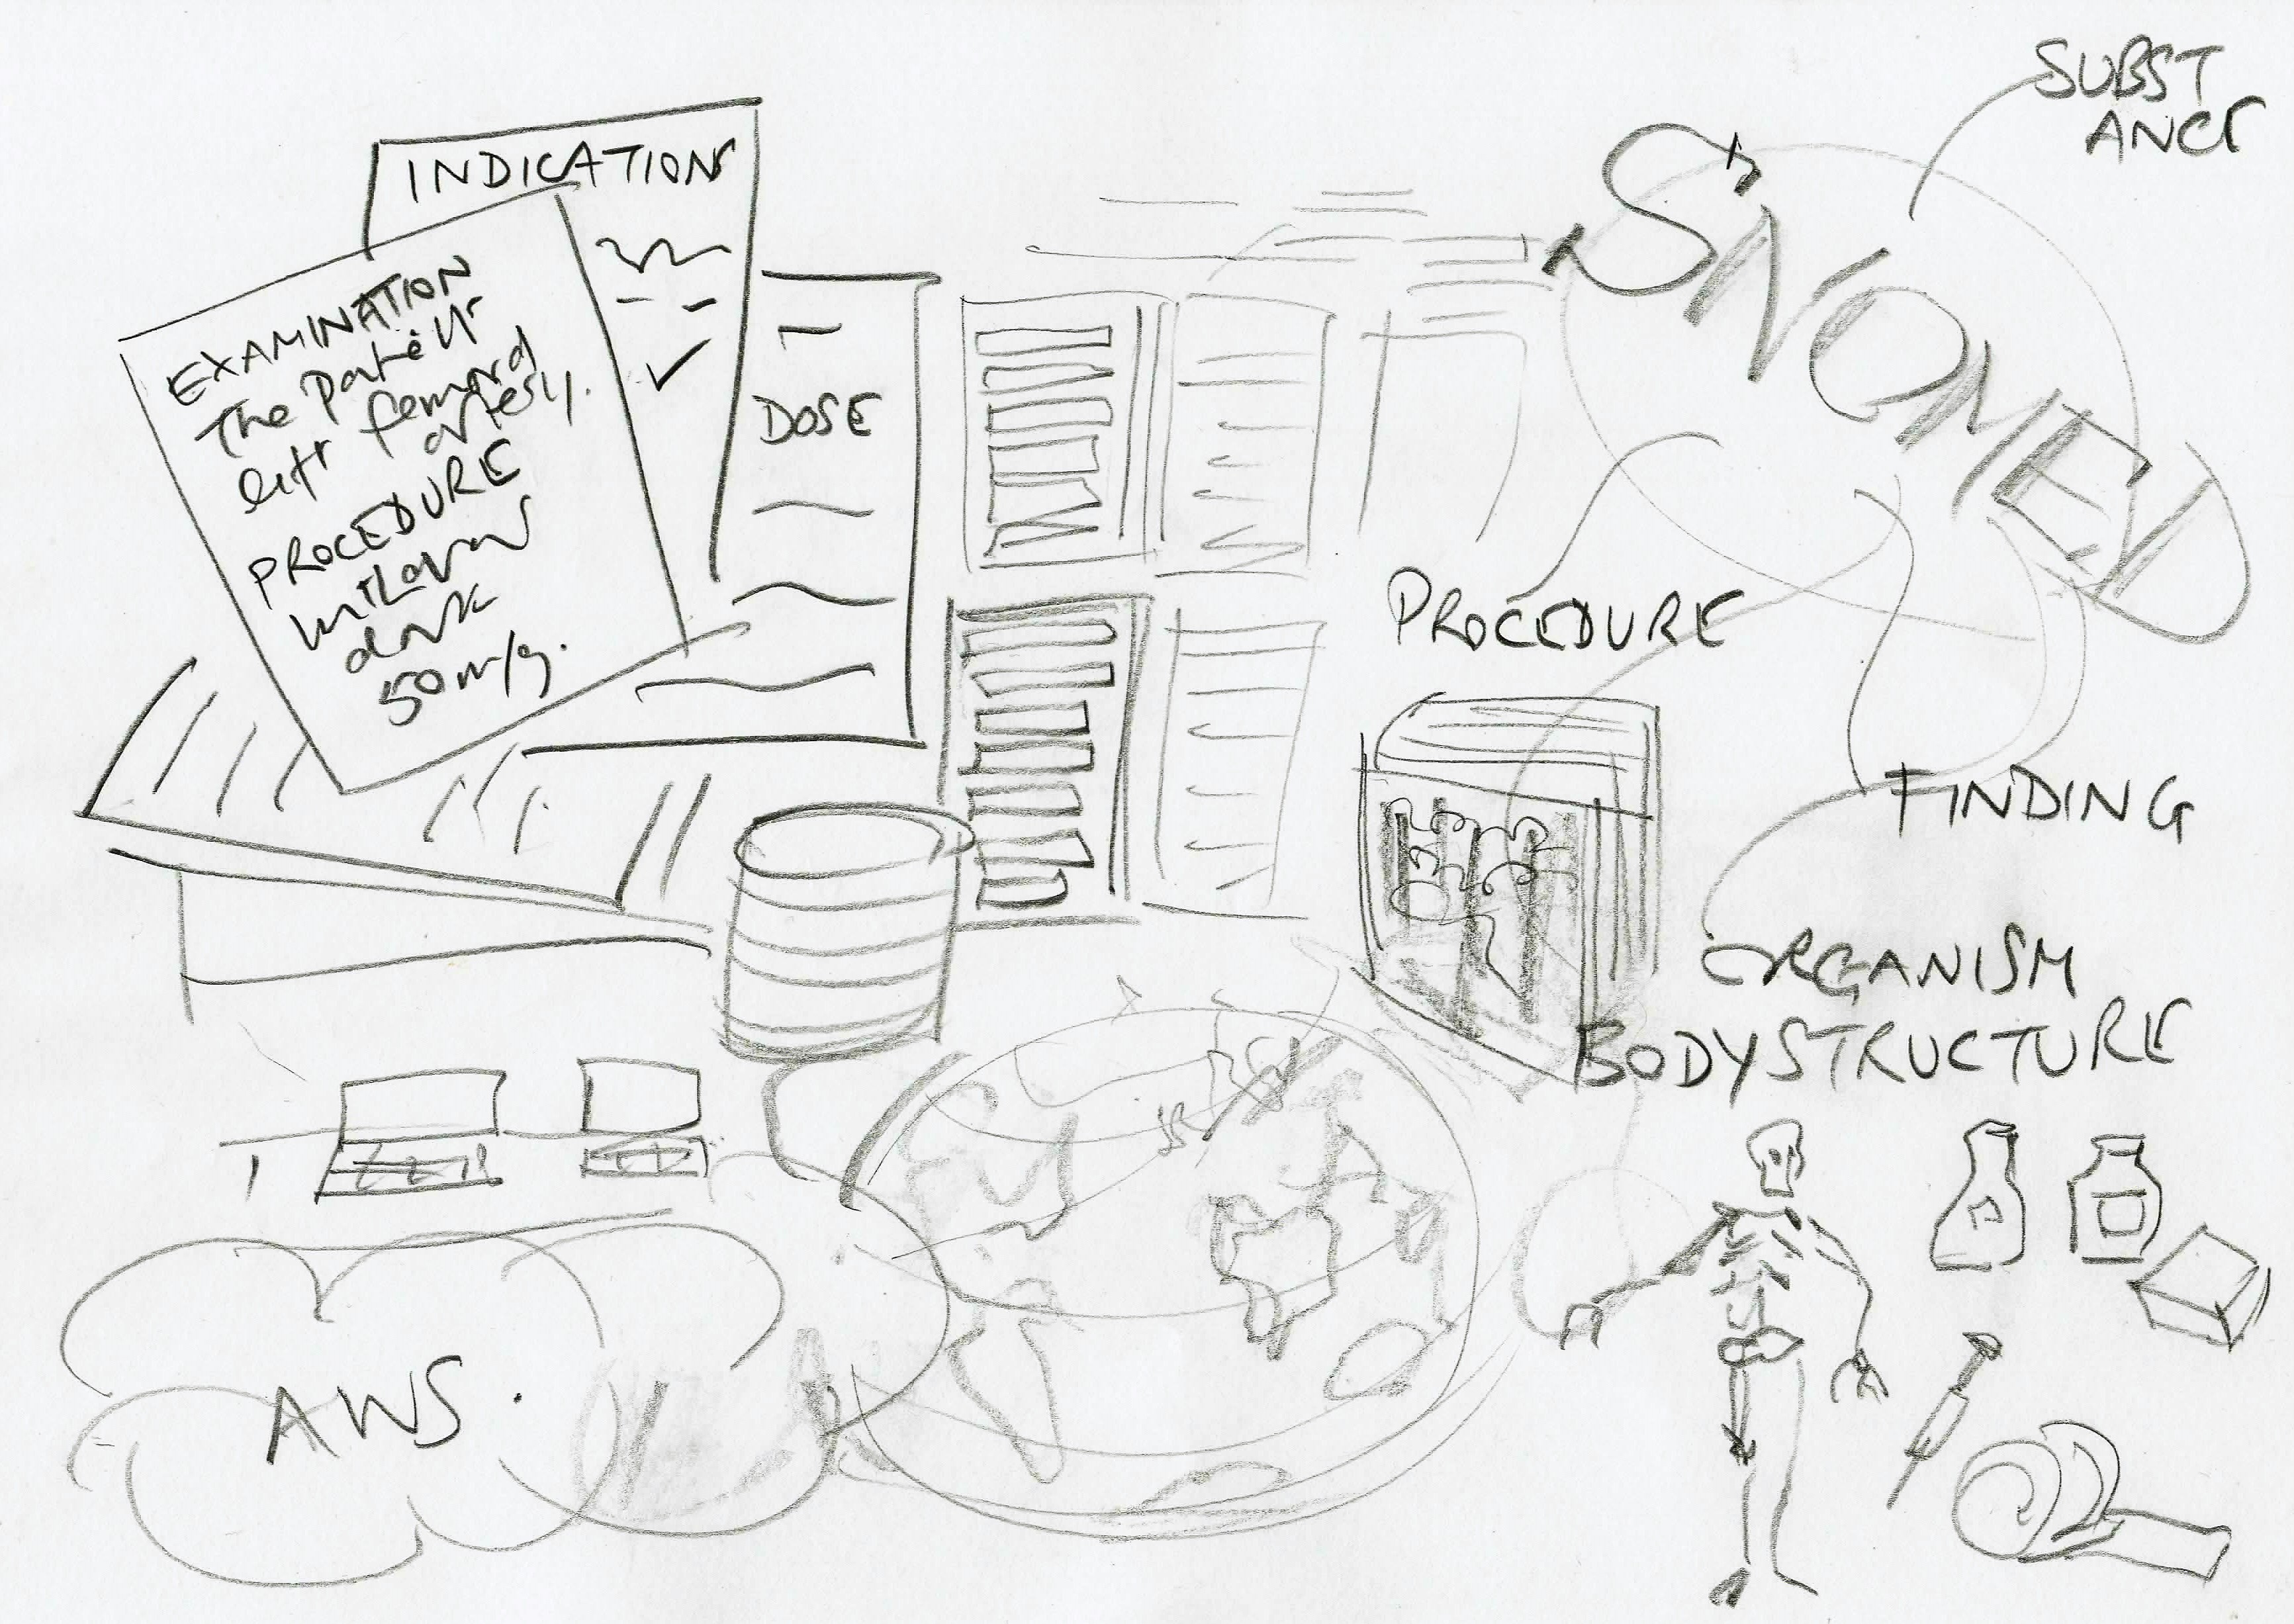 INDICATION
EXAMINATION
The patient
left femoral
artery.
PROCEDURE
50 m/g.
DOSE
SUBST
ANCE
SNOMED
PROCEDURE
FINDING
ORGANISM
BODYSTRUCTURE
AWS